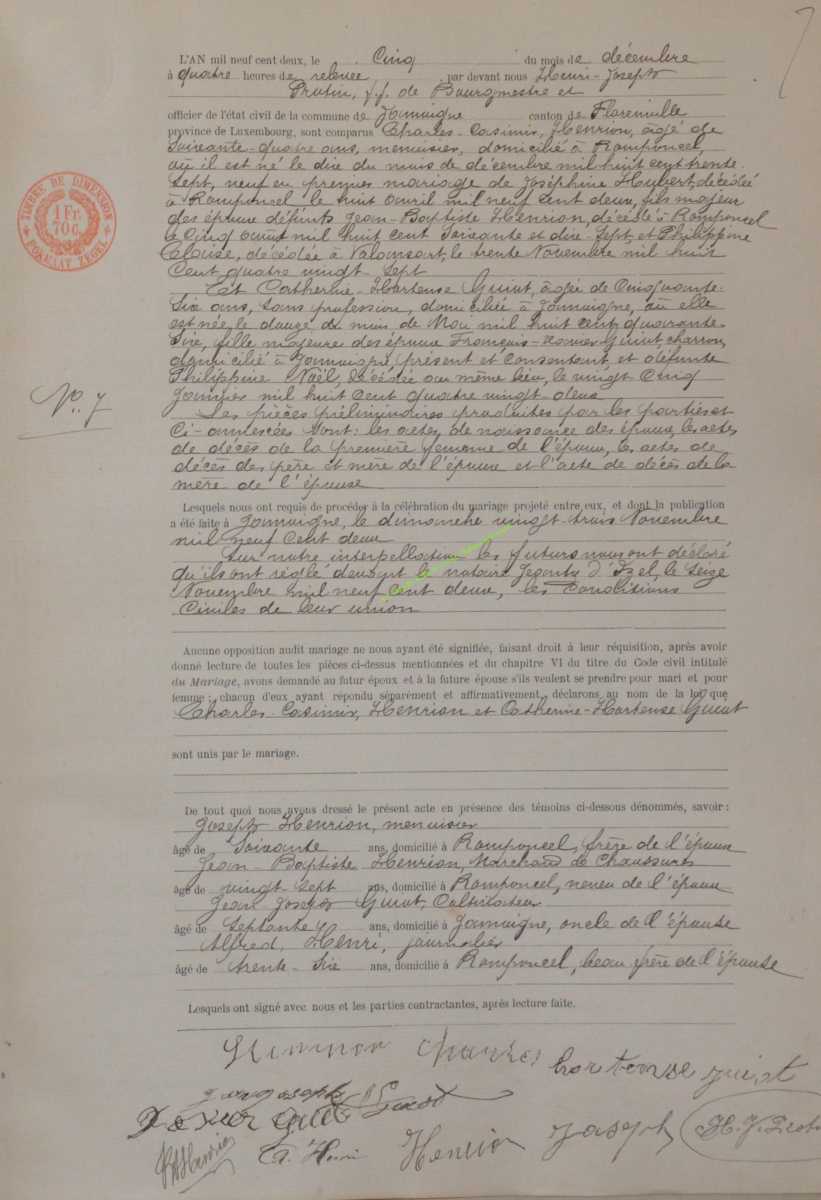 L'AN mil neuf cent deux, le Cinq du mois de décembre
à quatre heures de relevée par devant nous Henri-Joseph
f.f. de Bourgmestre et
officier de l'état civil de la commune de Jamoigne canton de Florenville
province de Luxembourg, sont comparus Charles-Casimir, Henrion, âgé de
Soixante-quatre ans, menuisier, domicilié à Romponcel,
où il est né le dix du mois de décembre mil huit cent trente-
sept, veuf en premier mariage de Joséphine Hubert, décédée
à Romponcel le huit avril mil neuf cent deux, fils majeur
des époux défunts Jean-Baptiste Henrion, décédé à Romponcel
le Cinq août mil huit cent Soixante et dix-Sept et Philippine
décédée à Valansart, le trente Novembre mil huit
Cent quatre vingt Sept
Et Catherine-Hortense Guiot, âgée de Cinquante-
Six ans, Sans profession, domiciliée à Jamoigne, où elle
est née le douze du mois de Mai mil huit cent quarante-
Six, fille majeure des époux François-Xavier Guiot, charron,
domicilié à Jamoigne, présent et Consentant, et défunte
Philippine Noël, décédée au même lieu, le vingt Cinq
Janvier mil huit Cent quatre vingt deux
Les pièces préliminaires produites par les parties et
Ci-annexées Sont: les actes de naissance des époux, les actes
de décès de la première femme de l'époux, les actes de
décès des père et mère de l'époux et l'acte de décès de la
mère de l'épouse
N°. 7
TIMBRE DE DIMENSION
1 Fr.
70 c.
FORMAAT ZEGEL
Lesquels nous ont requis de procéder à la célébration du mariage projeté entre eux, et dont la publication
a été faite à Jamoigne, le dimanche vingt-trois Novembre
mil neuf Cent deux
Sur notre interpellation les futurs nous ont déclaré
qu'ils ont réglé devant le notaire d'Izel, le Seize
Novembre mil neuf Cent deux, les Conditions
Civiles de leur union
Aucune opposition audit mariage ne nous ayant été signifiée, faisant droit à leur réquisition, après avoir
donné lecture de toutes les pièces ci-dessus mentionnées et du chapitre VI du titre du Code civil intitulé
du Mariage, avons demandé au futur époux et à la future épouse s'ils veulent se prendre pour mari et pour
femme ; chacun d'eux ayant répondu séparément et affirmativement, déclarons au nom de la loi que
Charles-Casimir, Henrion et Catherine-Hortense Guiot
sont unis par le mariage.
De tout quoi nous avons dressé le présent acte en présence des témoins ci-dessous dénommés, savoir :
Joseph Henrion, menuisier
âgé de Soixante ans, domicilié à Romponcel, frère de l'époux
Jean-Baptiste Henrion, Marchand de Chaussures
âgé de vingt-Sept ans, domicilié à Romponcel, neveu de l'époux
Jean Joseph Guiot, Cultivateur
âgé de Septante ans, domicilié à Jamoigne, oncle de l'épouse
Alfred, Henri, journalier
âgé de trente-Six ans, domicilié à Romponcel, beau frère de l'épouse
Lesquels ont signé avec nous et les parties contractantes, après lecture faite.
Henrion Charles hortense guiot
joseph Guiot
Henrion Joseph